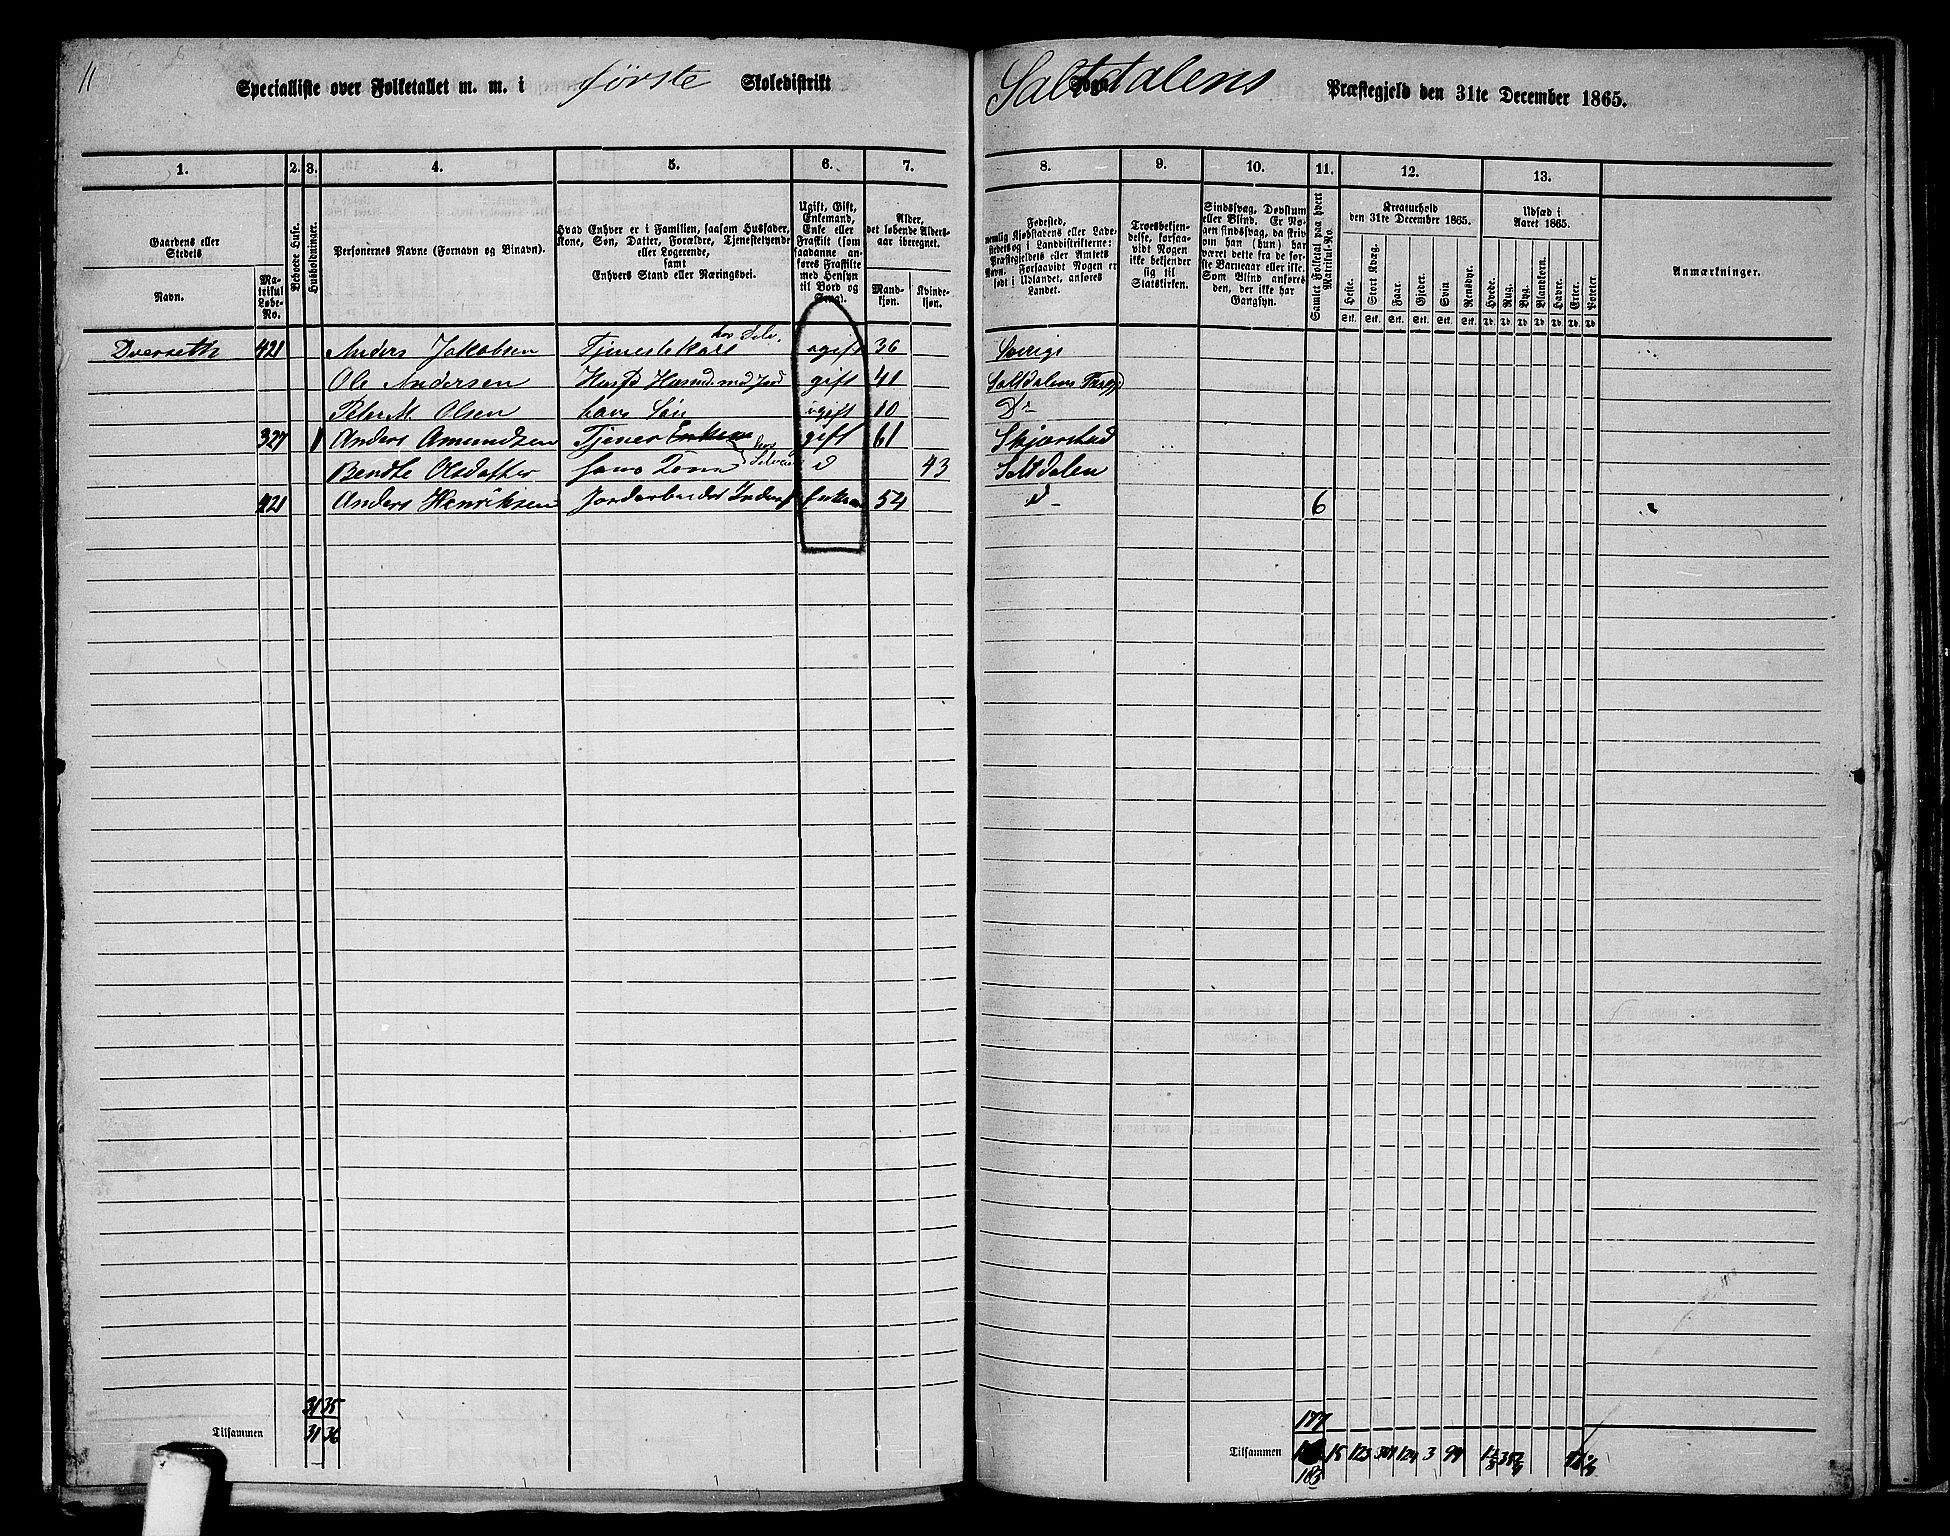 11
Specialliste over Folketallet m. m. i første Skoledistrikt
Saltdalens Sogn Præstegjeld den 31te December 1865.
1. 2. 3. 4. 5. 6. 7. 8. 9. 10. 11. 12. 13.
Gaardens eller Stedets
Navn.
Matrikul Løbe-No.
Beboede Huse.
Husholdninger.
Personernes Navne (Fornavn og Binavn).
Hvad Enhver er i Familien, saasom Husfader, Kone, Søn, Datter, Forældre, Tjenestetyende eller Logerende,
samt
Enhvers Stand eller Næringsvei.
Ugift, Gift, Enkemand, Enke eller Fraskilt (som saadanne anføres Fraskilte med Hensyn til Bord og Seng).
Alder, det løbende Alders-aar iberegnet.
Mand-kjøn.
Kvinde-kjøn.
Fødested, nemlig Kjøbstadens eller Ladestedets og i Landdistrikterne: Præstegjeldets eller Amtets Navn. Forsaavidt Nogen er født i Udlandet, anføres Landet.
Troesbekjendelse, forsaavidt Nogen ikke bekjender sig til Statskirken.
Sindssvag, Døvstum eller Blind. Er Nogen sindssvag, da skrives om han (hun) har været dette fra de første Barneaar eller ikke. Som Blind anføres den, der ikke har Gangsyn.
Samlet Folketal paa hvert Matrikul-No.
Kreaturhold den 31te December 1865.
Heste. Stort Kvæg. Faar. Gjeder. Svin Rensdyr.
Stk. Stk. Stk. Stk. Stk. Stk.
Udsæd i Aaret 1865.
Hvede. Rug. Byg. Blandkorn. Havre. Erter. Poteter.
Td. Td. Td. Td. Td. Td. Td.
Anmærkninger.
Dverseth 421 Anders Jakobsen Tjenestekarl hos Selv. ugift 36 Sverige
Ole Andersen Husfd Husmd. med Jord gift 41 Saltdalens
Peter M. Olsen hans Søn ugift 10 Do
327 1 Anders Amundsen Tjener gift 61 Skjærstad
Bendte Olsdatter hans Kone d 43 Saltdalen
421 Anders Henriksen Enkem 54 d 6
31 35
Tilsammen 31 36
177
Tilsammen 15 123 124 3 99
183